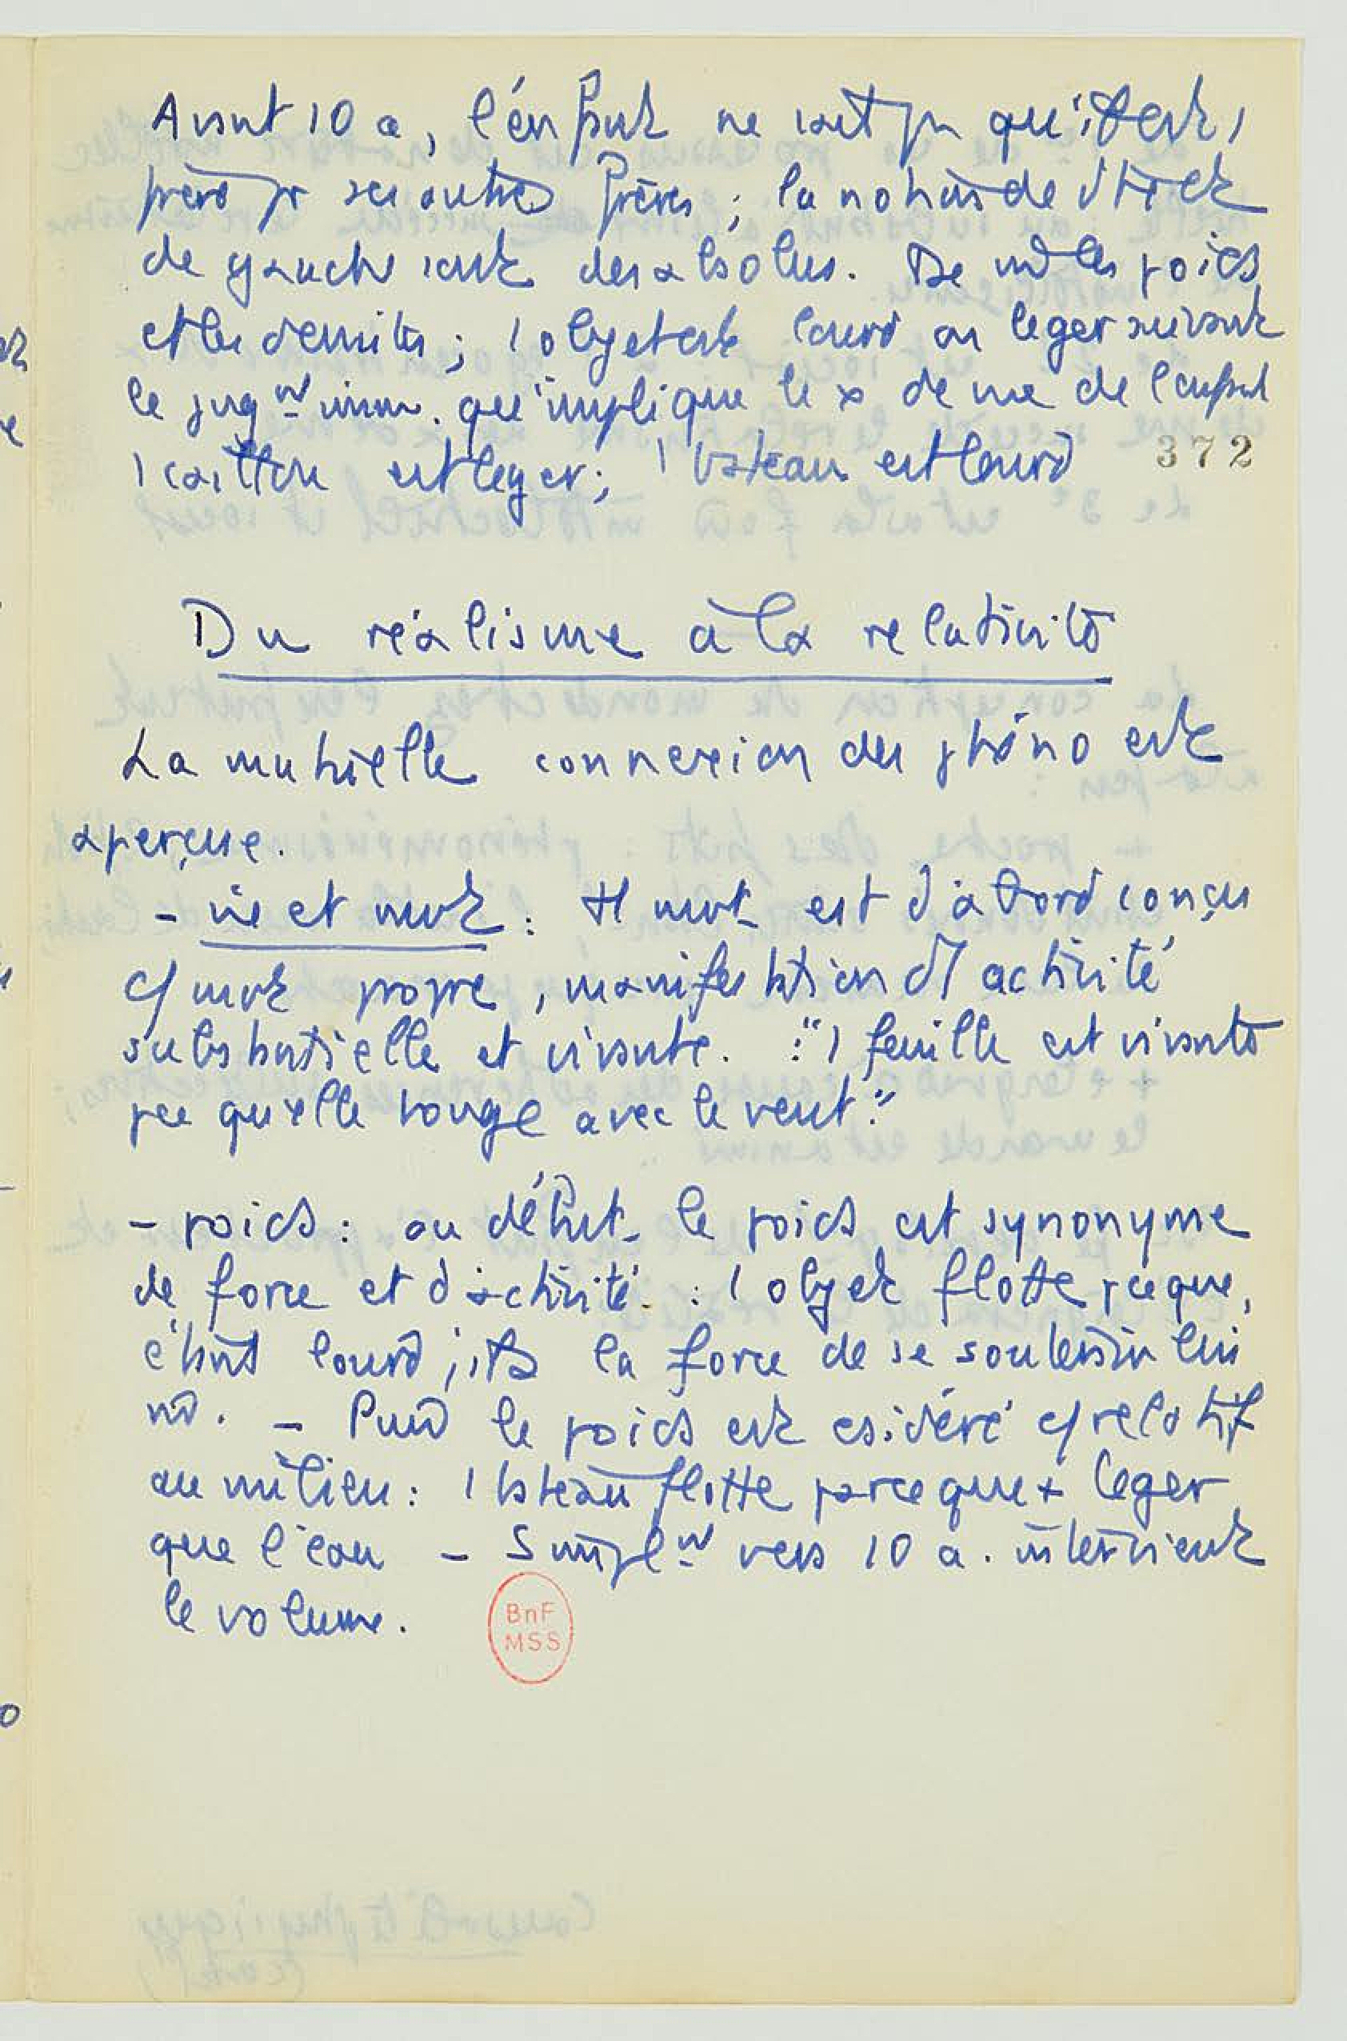 Avant 10 a, l'enfant ne sait pas qu'il est 1
frère pr ses autres frères ; la notion de droite
de gauche sont des absolus. De m̂ les poids
et les densités ; 1 objet est lourd ou léger suivant
le jugnt imm. qu'implique le x de vue de l'enfant
1 caillou est léger ; 1 bateau est lourd
372
Du réalisme à la relativité
La mutuelle connexion des phéno est
aperçue.
- vie et mvt : tt mvt est d'abord conçu
c/ mvt propre, manifestation d'1 activité
substantielle et vivante. : "1 feuille est vivante
pce qu'elle bouge avec le vent."
- poids : au début le poids est synonyme
de force et d'activité : 1 objet flotte pceque,
étant lourd, il a la force de se soutenir lui
m̂. - Puis le poids est csidéré c/ relatif
au milieu : 1 bateau flotte parceque + léger
que l'eau - Simplnt vers 10 a. intervient
le volume.
BnF
MSS